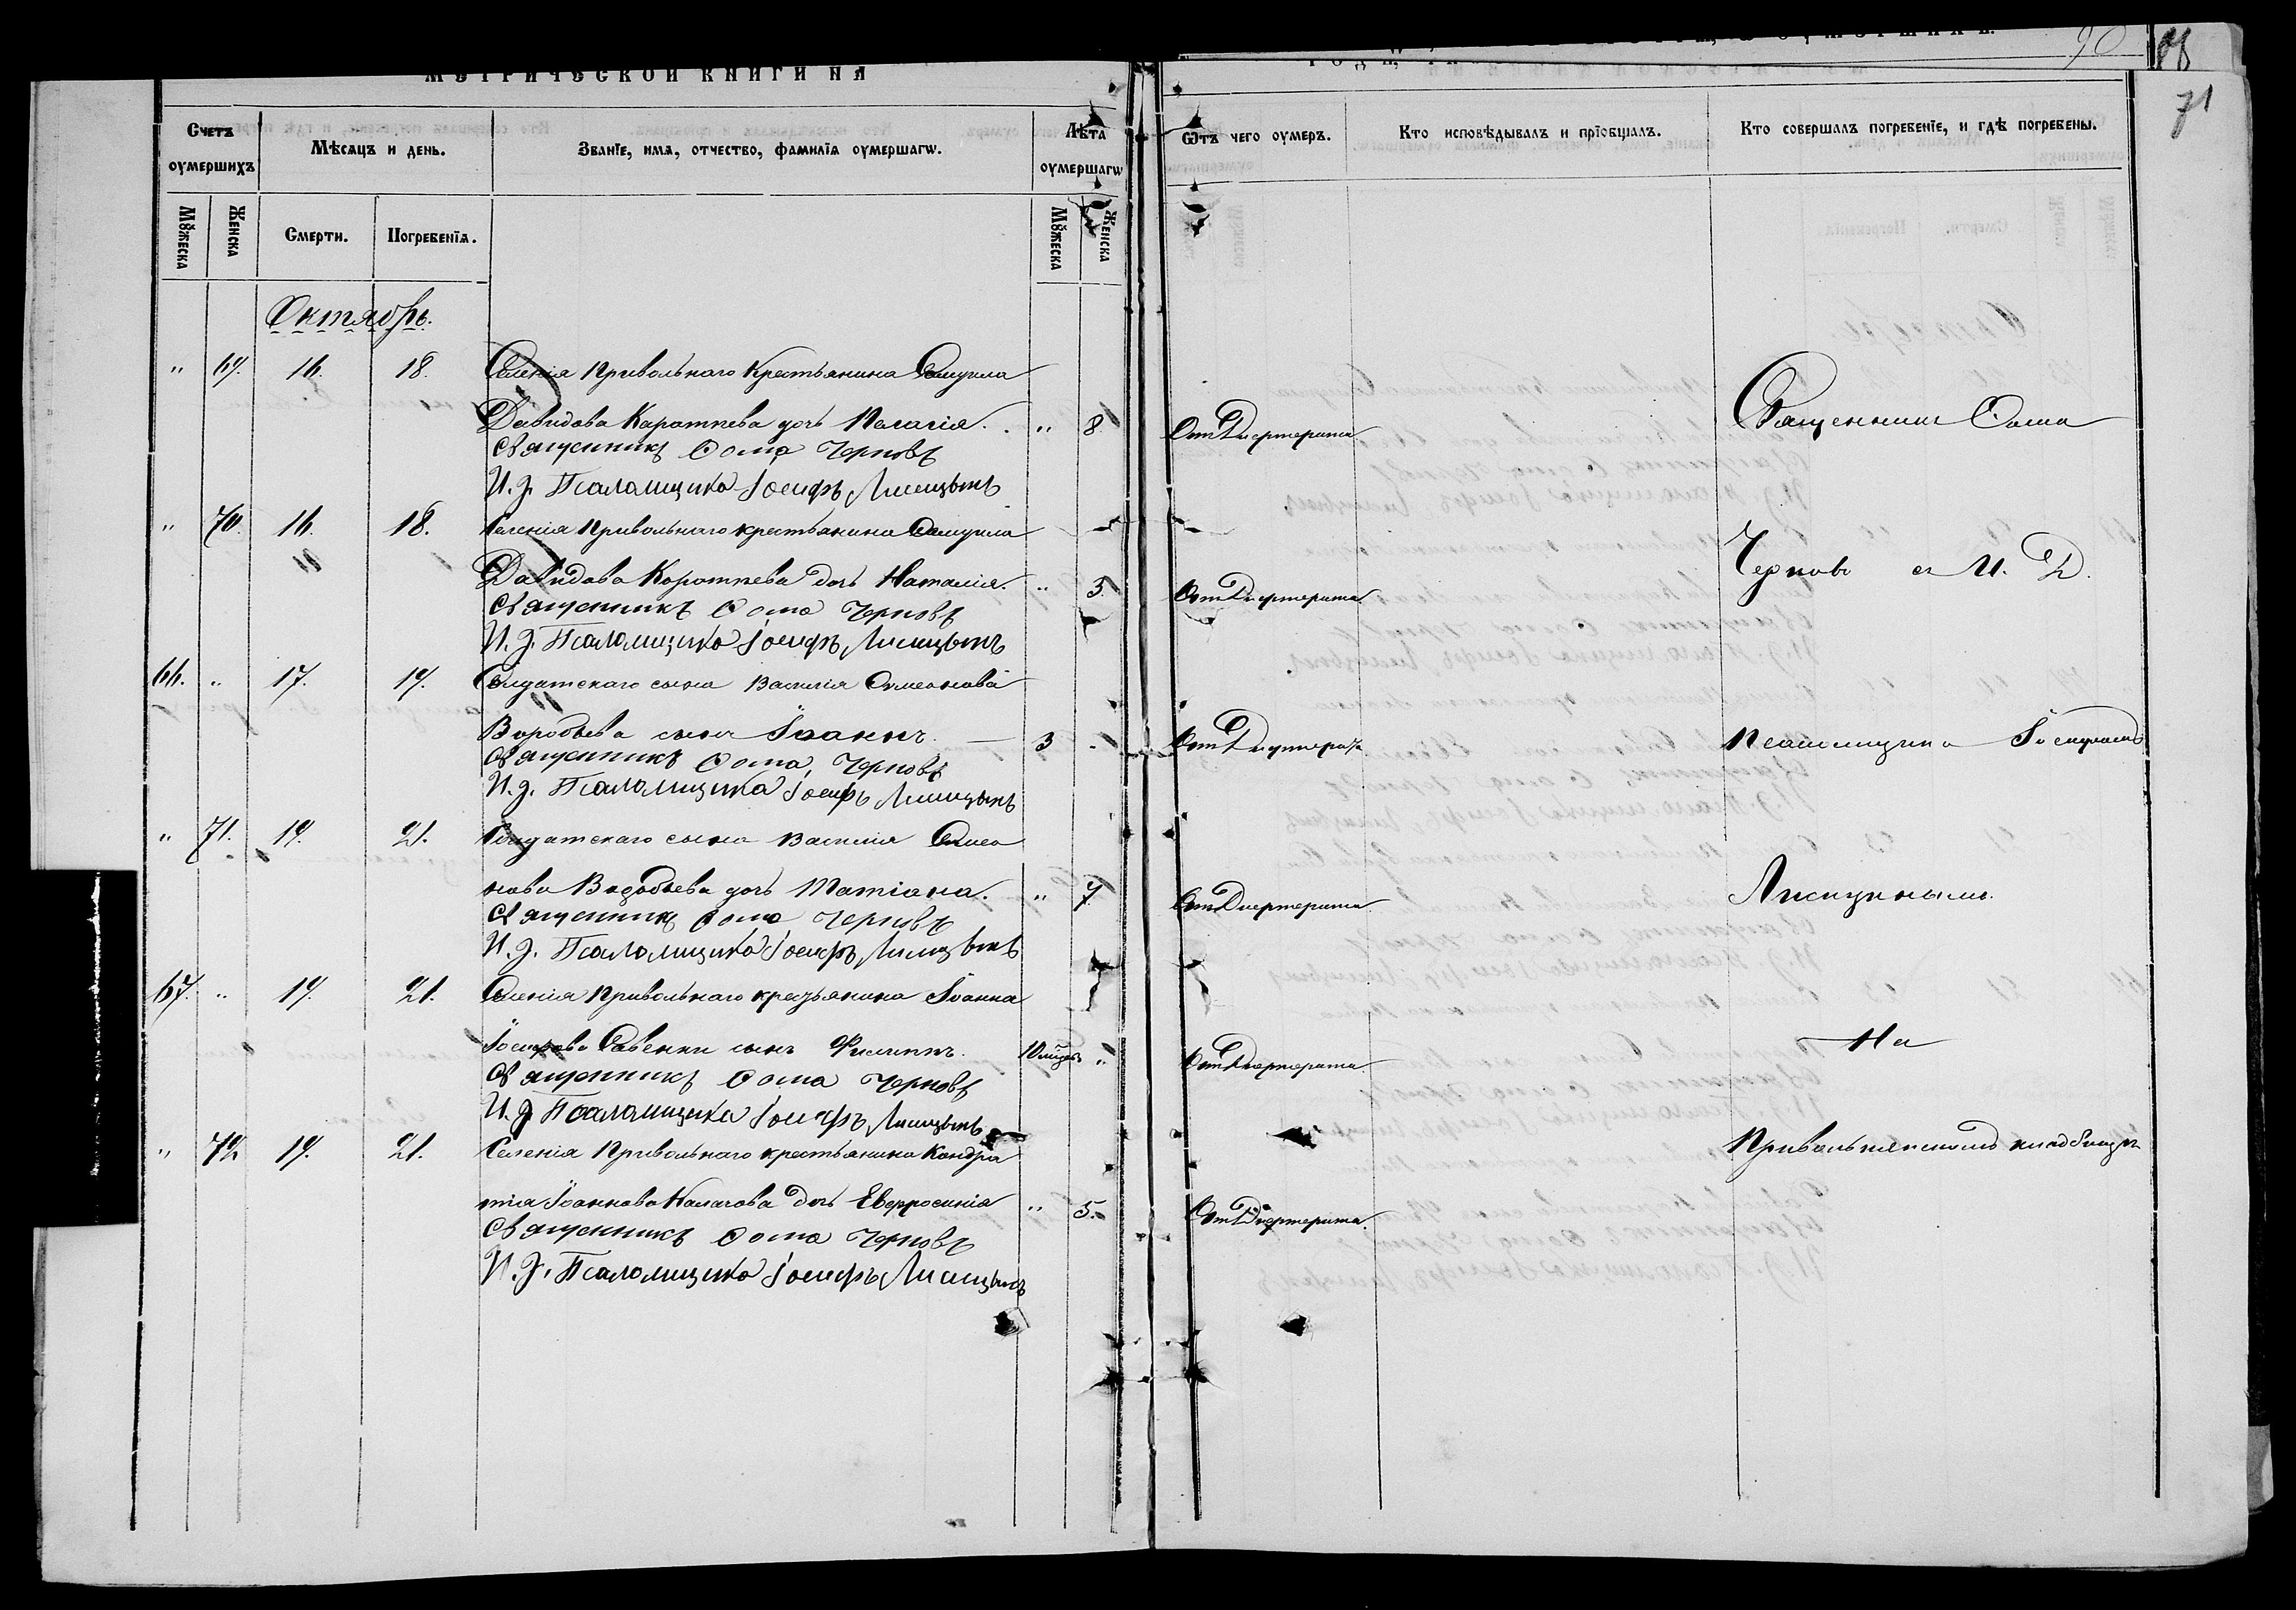 МЕТРИЧЕСКОЙ КНИГИ НА
Счетъ оумершихъ
Мѣсяцъ и день.
Званїе, имѧ, отчество, фамилїѧ оумершагѡ.
Лѣта оумершагѡ
Мꙋжеска
Женска
Смерти.
Погребенїѧ.
Мꙋжеска
Женска
Октябрь.
" 69. 16. 18. Селенія Привольнаго крестьянина Самуила
Давидова Коротпева дочь Пелагія. " 8
Священникъ Ѳома Черновъ
И. д. Псаломщика Іосифъ Лисицынъ
" 70. 16. 18. Селенія Привольнаго крестьянина Самуила
Давидова Коротпева дочь Наталія. " 5.
Священникъ Ѳома Черновъ
И. д. Псаломщика Іосифъ Лисицынъ
66. " 17. 19. Солдатскаго сына Василія Симеонова
Воробьева сынъ Іоаннъ. 3 "
Священникъ Ѳома Черновъ
И. д. Псаломщика Іосифъ Лисицынъ
" 71. 19. 21. Солдатскаго сына Василія Симео
нова Воробьева дочь Татіана. " 7.
Священникъ Ѳома Черновъ
И. д. Псаломщика Іосифъ Лисицынъ
67. " 19. 21. Селенія Привольнаго крестьянина Іоанна
Іосифова Савенки сынъ Филиппъ. 10 мѣцъ "
Священникъ Ѳома Черновъ
И. д. Псаломщика Іосифъ Лисицынъ
" 72. 19. 21. Селенія Привольнаго крестьянина Кондра
тія Іоаннова Калачова дочь Евфросинія " 5.
Священникъ Ѳома Черновъ
И. д. Псаломщика Іосифъ Лисицынъ
90
71
Ѿтъ чего оумеръ.
Кто исповѣдывалъ и прїобщалъ.
Кто совершалъ погребенїе, и гдѣ погребены.
Отъ Дифтерита
Отъ Дифтерита
Отъ Дифтерита
Отъ Дифтерита
Отъ Дифтерита
Отъ Дифтерита.
Священникъ Ѳома
Черновъ съ И. Д.
Псаломщика Іосифомъ
Лисицынымъ.
На
Привольненскомъ кладбищѣ